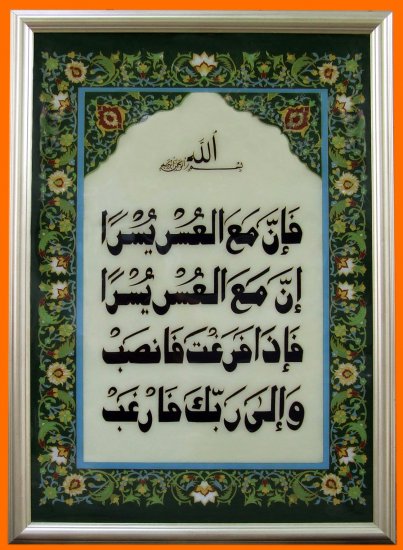 بسم الله الرحمن الرحيم
فَإِنَّ مَعَ الْعُسْرِ يُسْرًا
إِنَّ مَعَ الْعُسْرِ يُسْرًا
فَإِذَا فَرَغْتَ فَانصَبْ
وَإِلَىٰ رَبِّكَ فَارْغَبْ